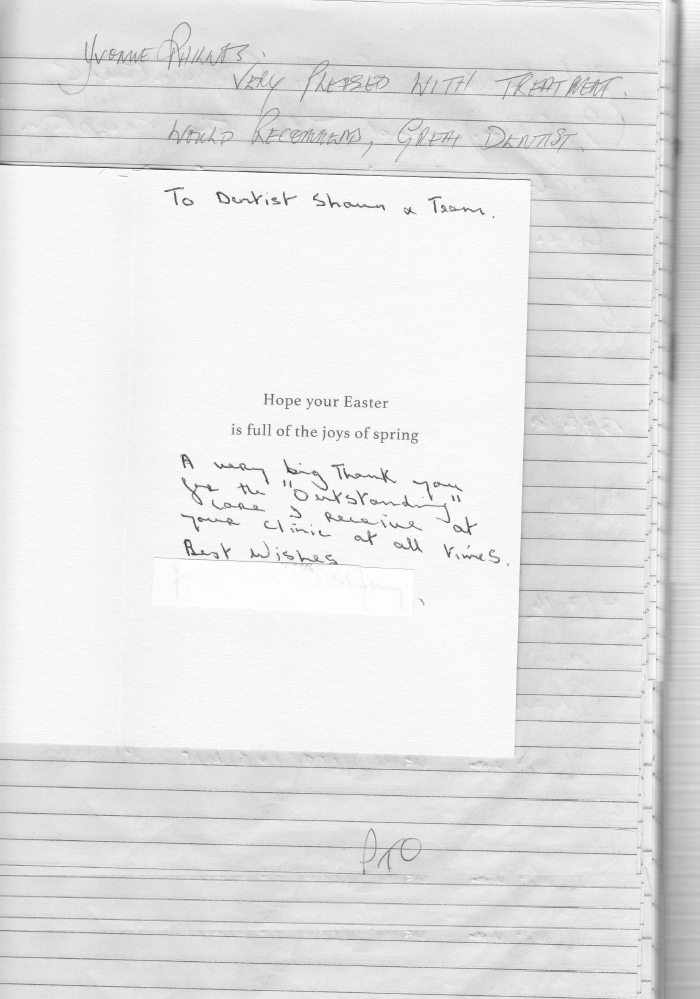 Yvonne
VERY PLEASED WITH TREATMENT.
WOULD RECOMMEND, GREAT DENTIST.
To Dentist Shaun & Team.
Hope your Easter
is full of the joys of spring
A very big Thank you
for the "Outstanding"
care I receive at
your clinic at all times.
Best Wishes
PTO